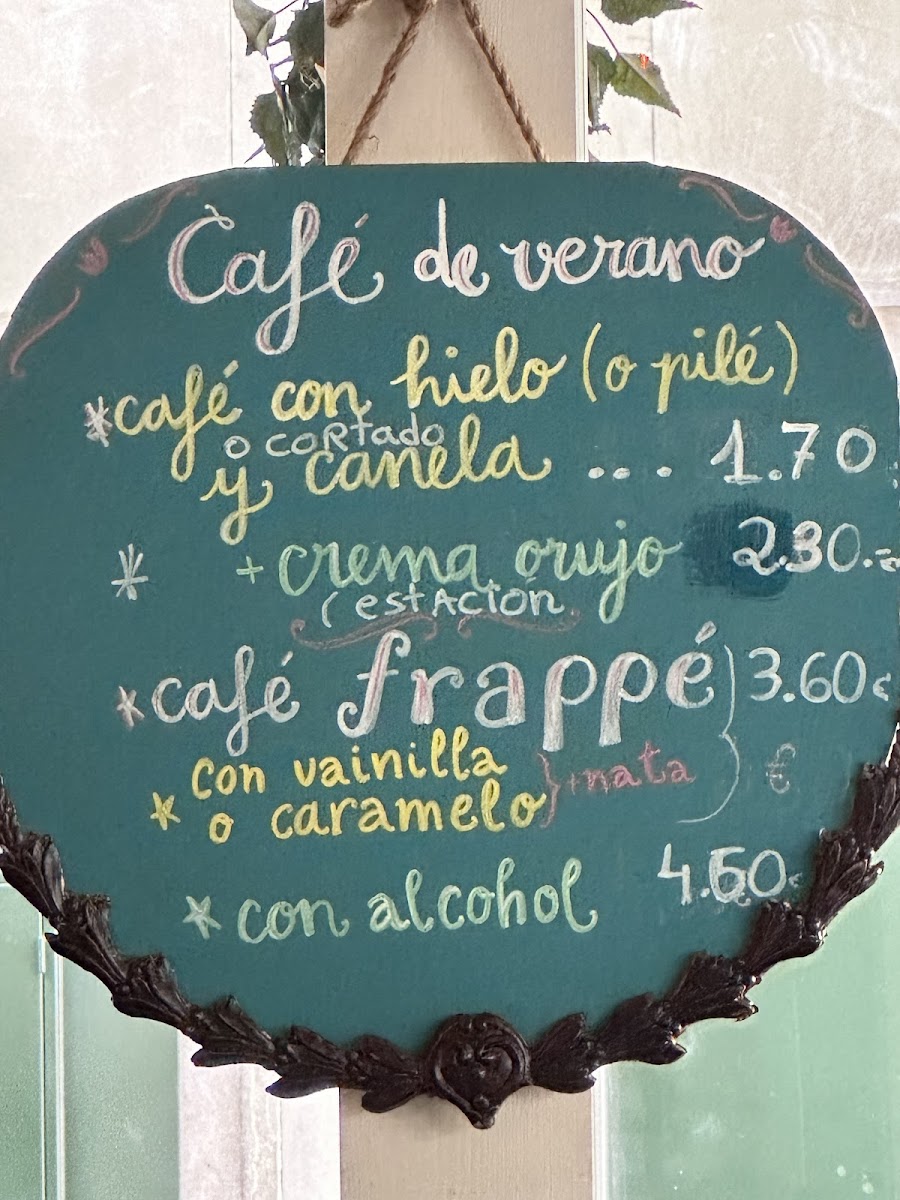 Café de verano
*café con hielo (o pilé)
o cortado
y canela .... 1.70
* + crema orujo 2.30.-
(estación
*café frappé } 3.60€
* con vainilla
o caramelo } +nata €
* con alcohol 4.60€